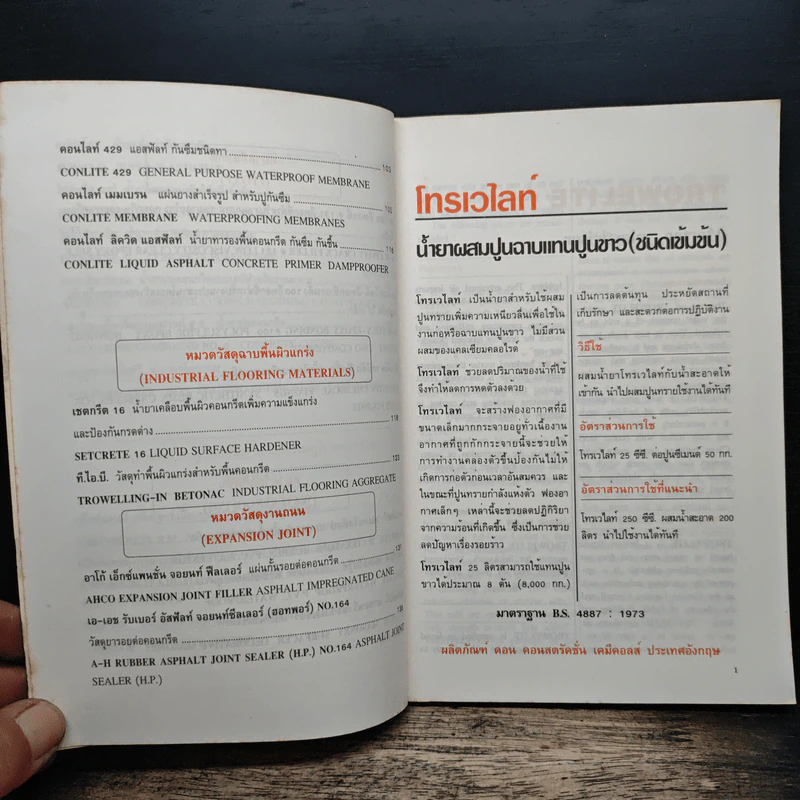 คอนไลท์ 429 แอสฟัลท์ กันซึมชนิดทา 103
CONLITE 429 GENERAL PURPOSE WATERPROOF MEMBRANE
คอนไลท์ เมมเบรน แผ่นยางสำเร็จรูป สำหรับปูกันซึม 105
CONLITE MEMBRANE WATERPROOFING MEMBRANES
คอนไลท์ ลิควิด แอสฟัลท์ น้ำยาทารองพื้นคอนกรีต กันซึม กันชื้น
CONLITE LIQUID ASPHALT CONCRETE PRIMER DAMPPROOFER
หมวดวัสดุฉาบพื้นผิวแกร่ง
(INDUSTRIAL FLOORING MATERIALS)
เซตกรีต 16 น้ำยาเคลือบพื้นผิวคอนกรีตเพิ่มความแข็งแกร่ง
และป้องกันกรดด่าง
SETCRETE 16 LIQUID SURFACE HARDENER
ที.ไอ.บี. วัสดุทำพื้นผิวแกร่งสำหรับพื้นคอนกรีต 123
TROWELLING-IN BETONAC INDUSTRIAL FLOORING AGGREGATE
หมวดวัสดุงานถนน
(EXPANSION JOINT)
อาโก้ เอ็กซ์แพนชั่น จอยนท์ ฟิลเลอร์ แผ่นกั้นรอยต่อคอนกรีต
AHCO EXPANSION JOINT FILLER ASPHALT IMPREGNATED CANE
เอ-เอช รับเบอร์ อัสฟัลท์ จอยนท์ซีลเลอร์ (ฮอทพอร์) NO.164
วัสดุยารอยต่อคอนกรีต
A-H RUBBER ASPHALT JOINT SEALER (H.P.) NO.164 ASPHALT JOINT
SEALER (H.P.)
โทรเวไลท์
น้ำยาผสมปูนฉาบแทนปูนขาว(ชนิดเข้มข้น)
โทรเวไลท์ เป็นน้ำยาสำหรับใช้ผสม
ปูนทรายเพิ่มความเหนียวลื่นเพื่อใช้ใน
งานก่อหรือฉาบแทนปูนขาว ไม่มีส่วน
ผสมของแคลเซียมคลอไรด์
โทรเวไลท์ ช่วยลดปริมาณของน้ำที่ใช้
จึงทำให้ลดการหดตัวลงด้วย
โทรเวไลท์ จะสร้างฟองอากาศที่มี
ขนาดเล็กมากกระจายอยู่ทั่วเนื้องาน
อากาศที่ถูกกักกระจายนี้จะช่วยให้
การทำงานคล่องตัวขึ้นป้องกันไม่ให้
เกิดการก่อตัวก่อนเวลาอันสมควร และ
ในขณะที่ปูนทรายกำลังแห้งตัว ฟองอา
กาศเล็กๆ เหล่านี้จะช่วยลดปฏิกิริยา
จากความร้อนที่เกิดขึ้น ซึ่งเป็นการช่วย
ลดปัญหาเรื่องรอยร้าว
โทรเวไลท์ 25 ลิตรสามารถใช้แทนปูน
ขาวได้ประมาณ 8 ตัน (8,000 กก.)
เป็นการลดต้นทุน ประหยัดสถานที่
เก็บรักษา และสะดวกต่อการปฏิบัติงาน
วิธีใช้
ผสมน้ำยาโทรเวไลท์กับน้ำสะอาดให้
เข้ากัน นำไปผสมปูนทรายใช้งานได้ทันที
อัตราส่วนการใช้
โทรเวไลท์ 25 ซีซี. ต่อปูนซีเมนต์ 50 กก.
อัตราส่วนการใช้ที่แนะนำ
โทรเวไลท์ 250 ซีซี. ผสมน้ำสะอาด 200
ลิตร นำไปใช้งานได้ทันที
มาตราฐาน B.S. 4887 : 1973
ผลิตภัณฑ์ ดอน คอนสตรัคชั่น เคมีคอลส์ ประเทศอังกฤษ
1